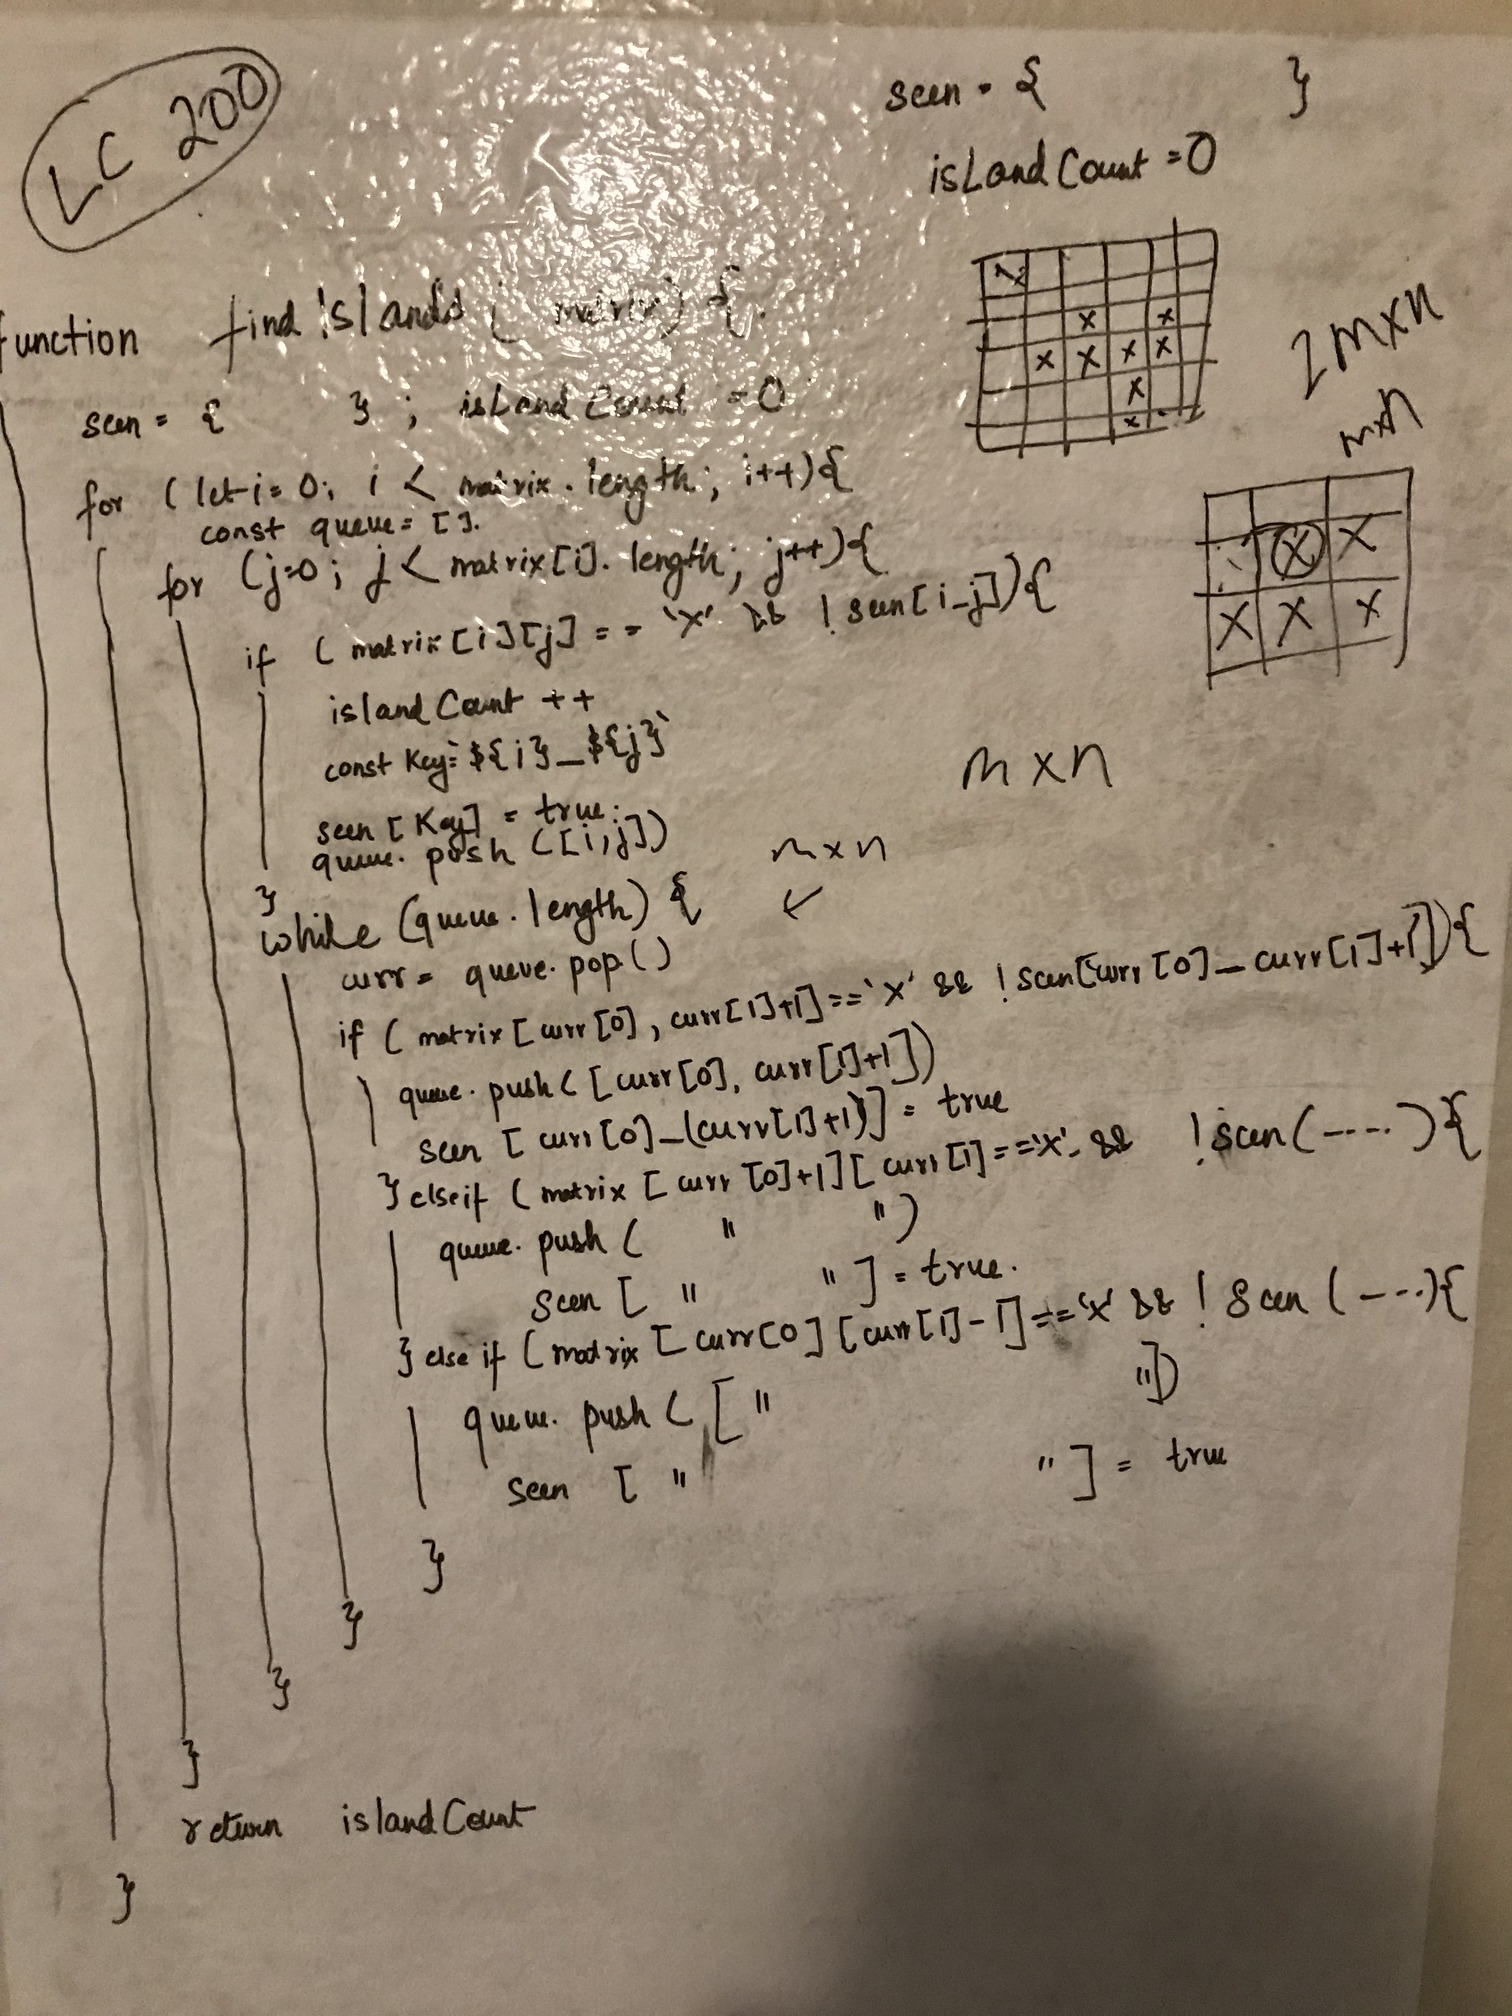 LC 200
seen = { }
isLandCount = 0
function findIslands ( matrix) {
seen = { } ; isLandCount = 0
for ( let i = 0; i < matrix.length; i++){
const queue = [].
for (j=0; j < matrix[i].length; j++){
if ( matrix[i][j] == 'X' && !seen[i_j]){
islandCount ++
const Key=`${i}_${j}`
seen [Key] = true;
queue.push ([i,j])
}
while (queue.length) {
curr = queue.pop()
if ( matrix [curr[0], curr[1]+1]=='X' && !seen[curr[0]_curr[1]+1]){
queue.push ( [curr[0], curr[1]+1])
seen [ curr[0]_(curr[1]+1)] = true
} elseif ( matrix [ curr[0]+1][ curr[1]=='X', && !seen(-----){
queue.push ( " ")
seen [ " " ] = true.
} else if ( matrix [ curr[0] [curr[1]-1]=='X' && ! Seen ( ----){
queue.push ( [ " "])
seen [ " " ] = true
}
}
}
}
return islandCount
}
x x
x x x x
x
x
2 m x n
m x n
X X
X X X
m x n
m x n